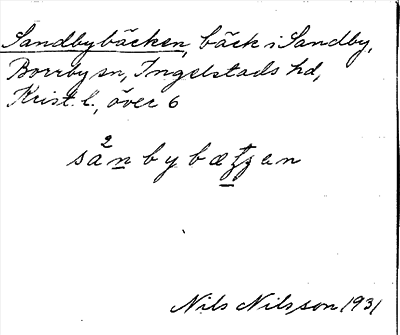 Sandbybäcken, bäck i Sandby,
Borrby sn, Ingelstads hd,
Krist. l., över 6
Nils Nilsson 1931